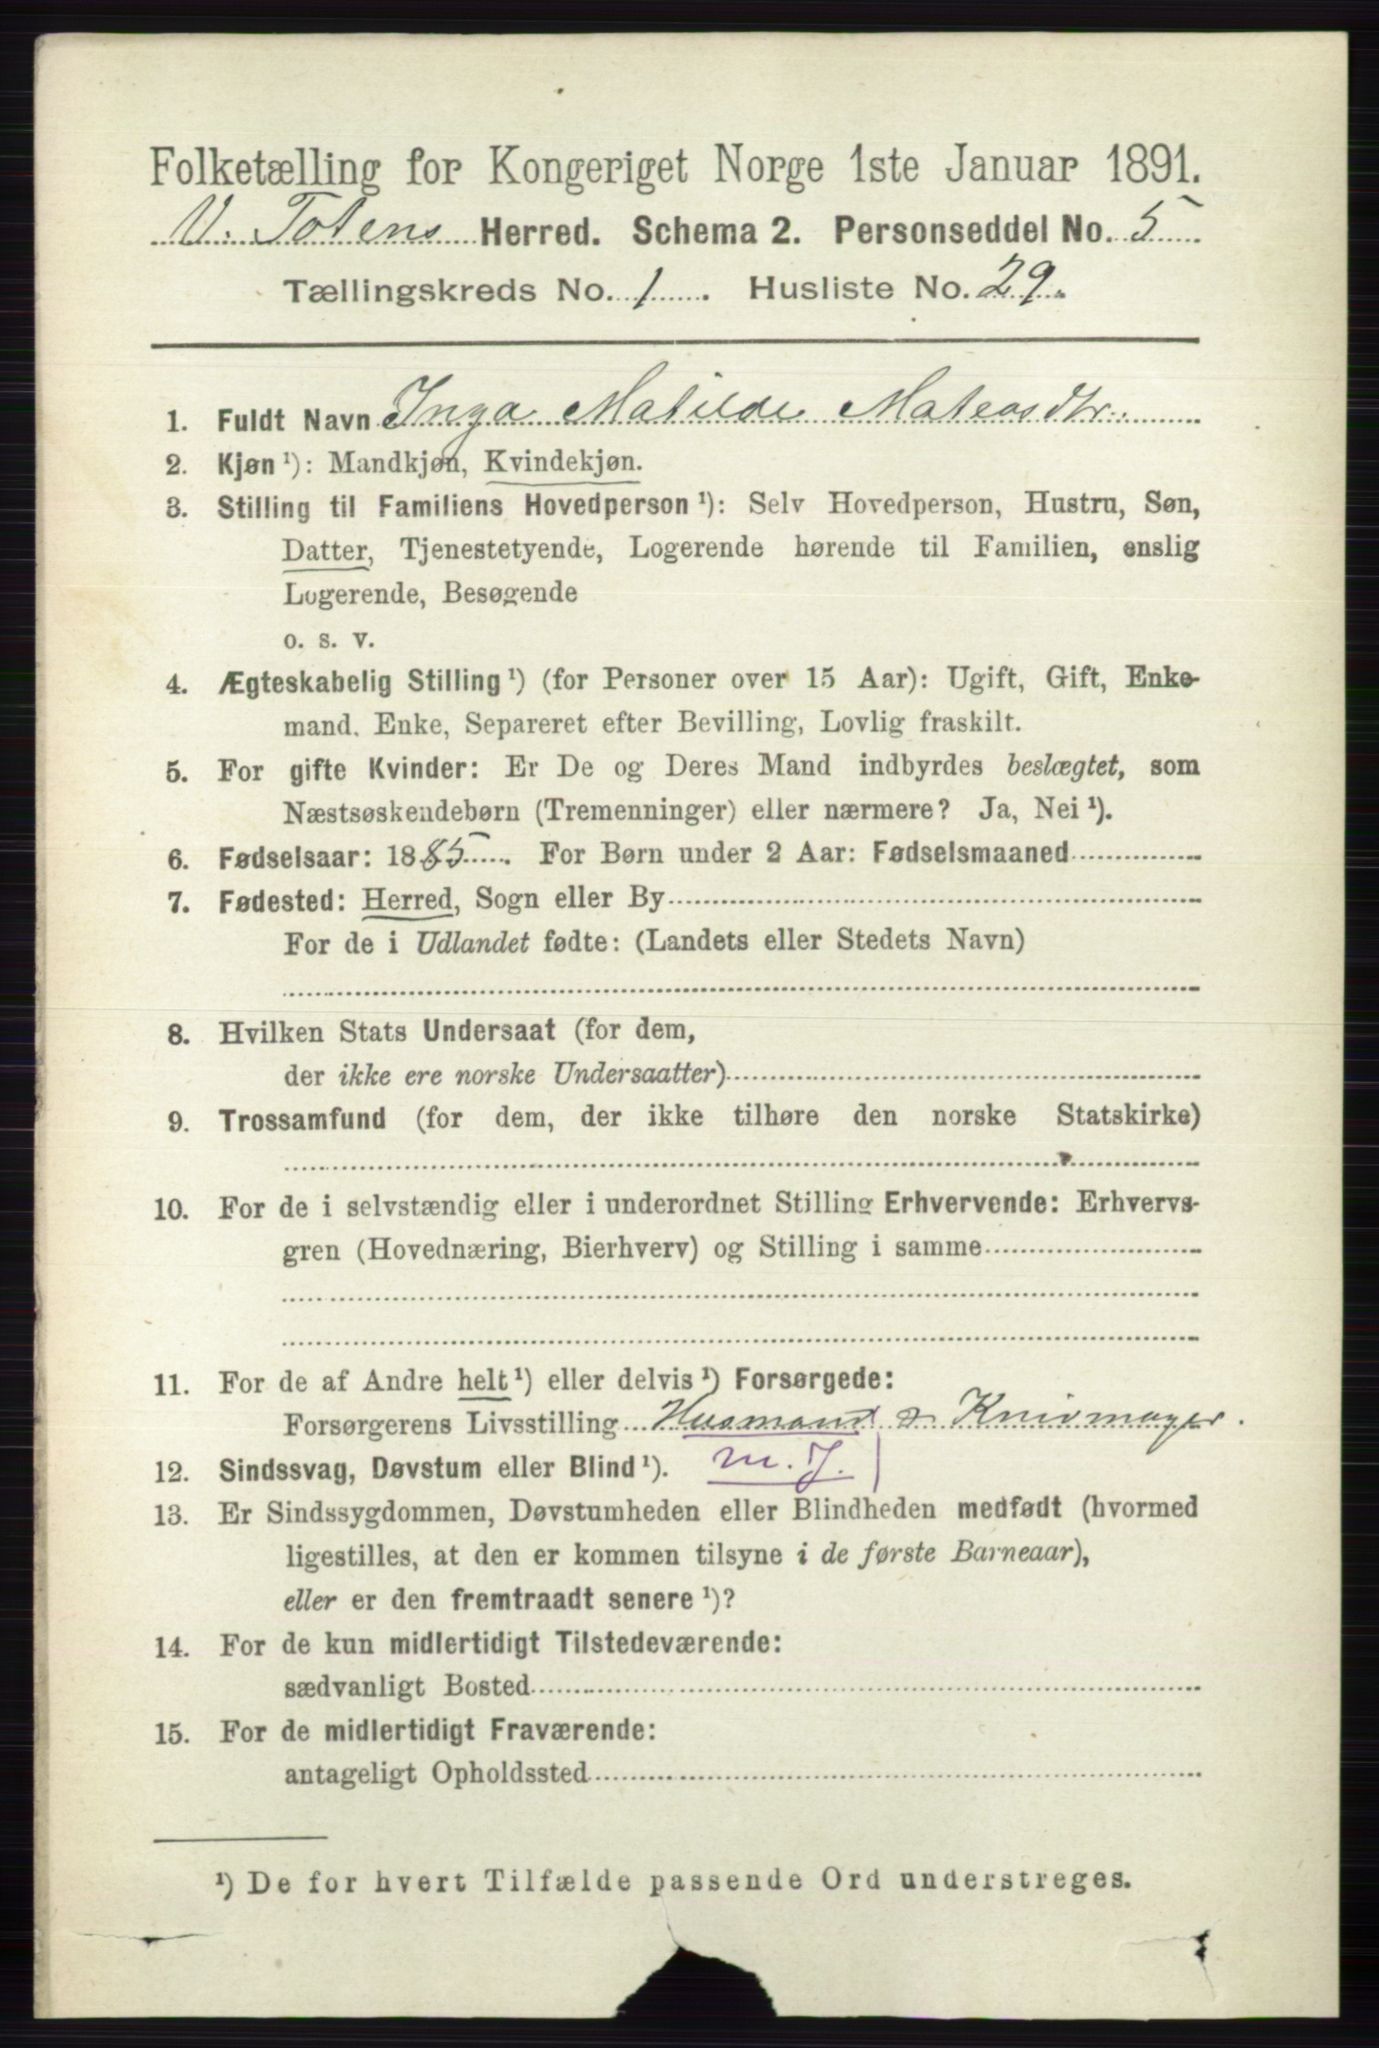 Folketælling for Kongeriget Norge 1ste Januar 1891.
V. Totens Herred. Schema 2. Personseddel No. 5
Tællingskreds No. 1. Husliste No. 29.
1. Fuldt Navn Inga Matilde Mateasdtr.
2. Kjøn¹): Mandkjøn, Kvindekjøn.
3. Stilling til Familiens Hovedperson¹): Selv Hovedperson, Hustru, Søn,
Datter, Tjenestetyende, Logerende hørende til Familien, enslig
Logerende, Besøgende
o. s. v.
4. Ægteskabelig Stilling¹) (for Personer over 15 Aar): Ugift, Gift, Enke-
mand, Enke, Separeret efter Bevilling, Lovlig fraskilt.
5. For gifte Kvinder: Er De og Deres Mand indbyrdes beslægtet, som
Næstsøskendebørn (Tremenninger) eller nærmere? Ja, Nei¹).
6. Fødselsaar: 1885. For Børn under 2 Aar: Fødselsmaaned
7. Fødested: Herred, Sogn eller By
For de i Udlandet fødte: (Landets eller Stedets Navn)
8. Hvilken Stats Undersaat (for dem,
der ikke ere norske Undersaatter)
9. Trossamfund (for dem, der ikke tilhøre den norske Statskirke)
10. For de i selvstændig eller i underordnet Stilling Erhvervende: Erhvervs-
gren (Hovednæring, Bierhverv) og Stilling i samme
11. For de af Andre helt¹) eller delvis¹) Forsørgede:
Forsørgerens Livsstilling Husmand & Knivmager.
12. Sindssvag, Døvstum eller Blind¹). m. J.
13. Er Sindssygdommen, Døvstumheden eller Blindheden medfødt (hvormed
ligestilles, at den er kommen tilsyne i de første Barneaar),
eller er den fremtraadt senere¹)?
14. For de kun midlertidigt Tilstedeværende:
sædvanligt Bosted
15. For de midlertidigt Fraværende:
antageligt Opholdssted
¹) De for hvert Tilfælde passende Ord understreges.